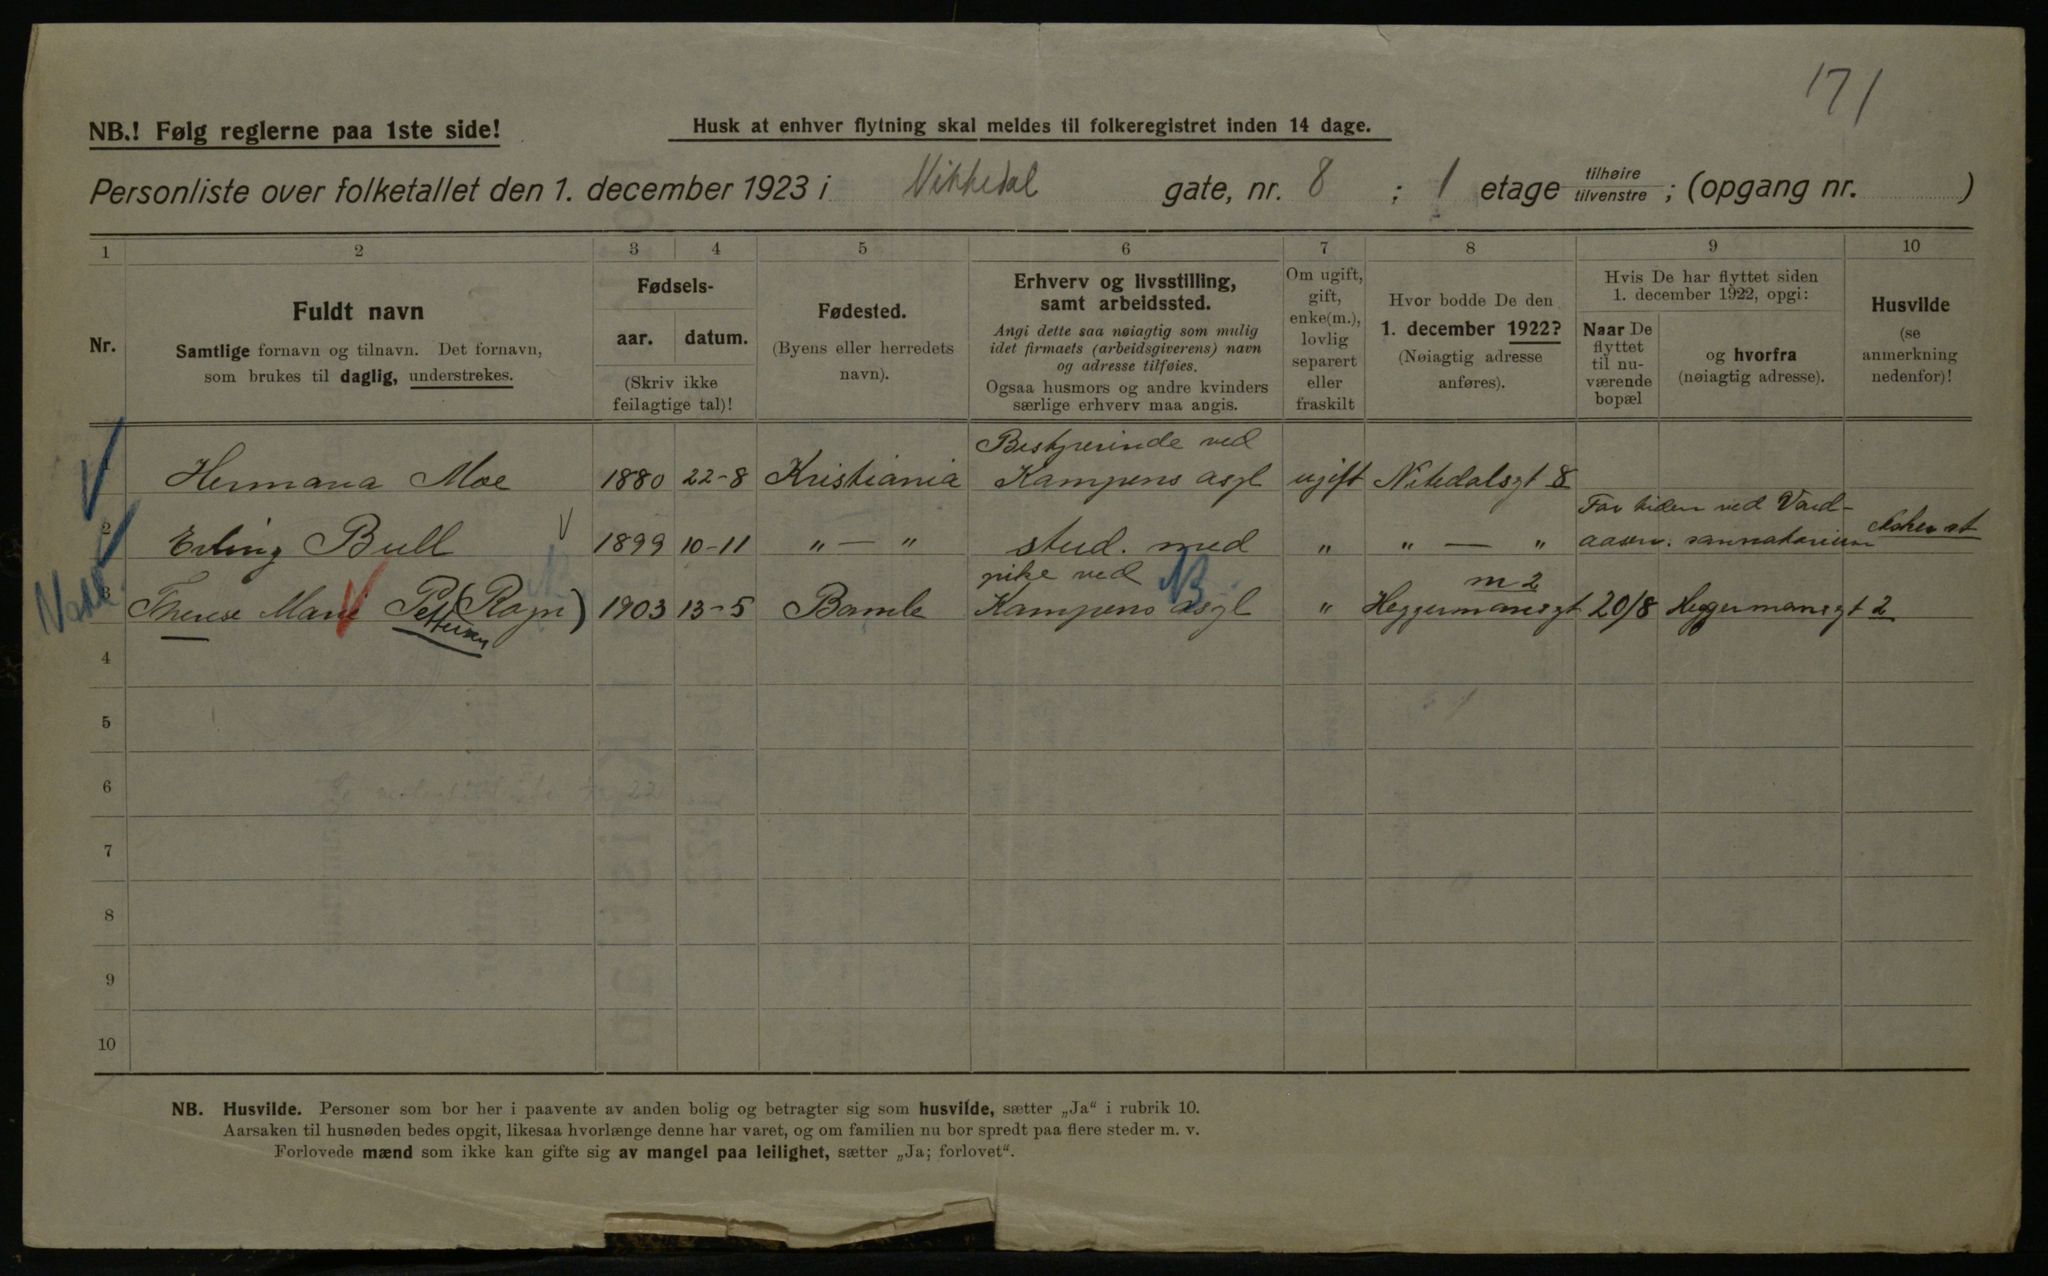 171
NB.! Følg reglerne paa 1ste side!
Husk at enhver flytning skal meldes til folkeregistret inden 14 dage.
Personliste over folketallet den 1. december 1923 i Nikkedal gate, nr. 8 ; 1 etage tilhøire tilvenstre ; (opgang nr. )
1 2 3 4 5 6 7 8 9 10
Nr.
Fuldt navn
Samtlige fornavn og tilnavn. Det fornavn,
som brukes til daglig, understrekes.
Fødsels-
aar. datum.
(Skriv ikke
feilagtige tal)!
Fødested.
(Byens eller herredets
navn).
Erhverv og livsstilling,
samt arbeidssted.
Angi dette saa nøiagtig som mulig
idet firmaets (arbeidsgiverens) navn
og adresse tilføies.
Ogsaa husmors og andre kvinders
særlige erhverv maa angis.
Om ugift,
gift,
enke(m.),
lovlig
separert
eller
fraskilt
Hvor bodde De den
1. december 1922?
(Nøiagtig adresse
anføres).
Hvis De har flyttet siden
1. december 1922, opgi:
Naar De
flyttet
til nu-
værende
bopæl
og hvorfra
(nøiagtig adresse).
Husvilde
(se
anmerkning
nedenfor)!
Bestyrerinde ved
1 Hermana Moe 1880 22-8 Kristiania Kampens asyl ugift Nitedalsgt 8
For tiden ved Vard-
2 Erling Bull 1899 10-11 „ — „ stud. med „ „ — „ aasen. sannatorium Asker st
pike ved NB m 2
3 Therese Marie Pettersen (Ragn) 1903 13-5 Bamle Kampens asyl „ Heggermansgt 20/8 Heggermansgt 2
4
5
6
7
8
9
10
NB. Husvilde. Personer som bor her i paavente av anden bolig og betragter sig som husvilde, sætter „Ja“ i rubrik 10.
Aarsaken til husnøden bedes opgit, likesaa hvorlænge denne har varet, og om familien nu bor spredt paa flere steder m. v.
Forlovede mænd som ikke kan gifte sig av mangel paa leilighet, sætter „Ja; forlovet“.